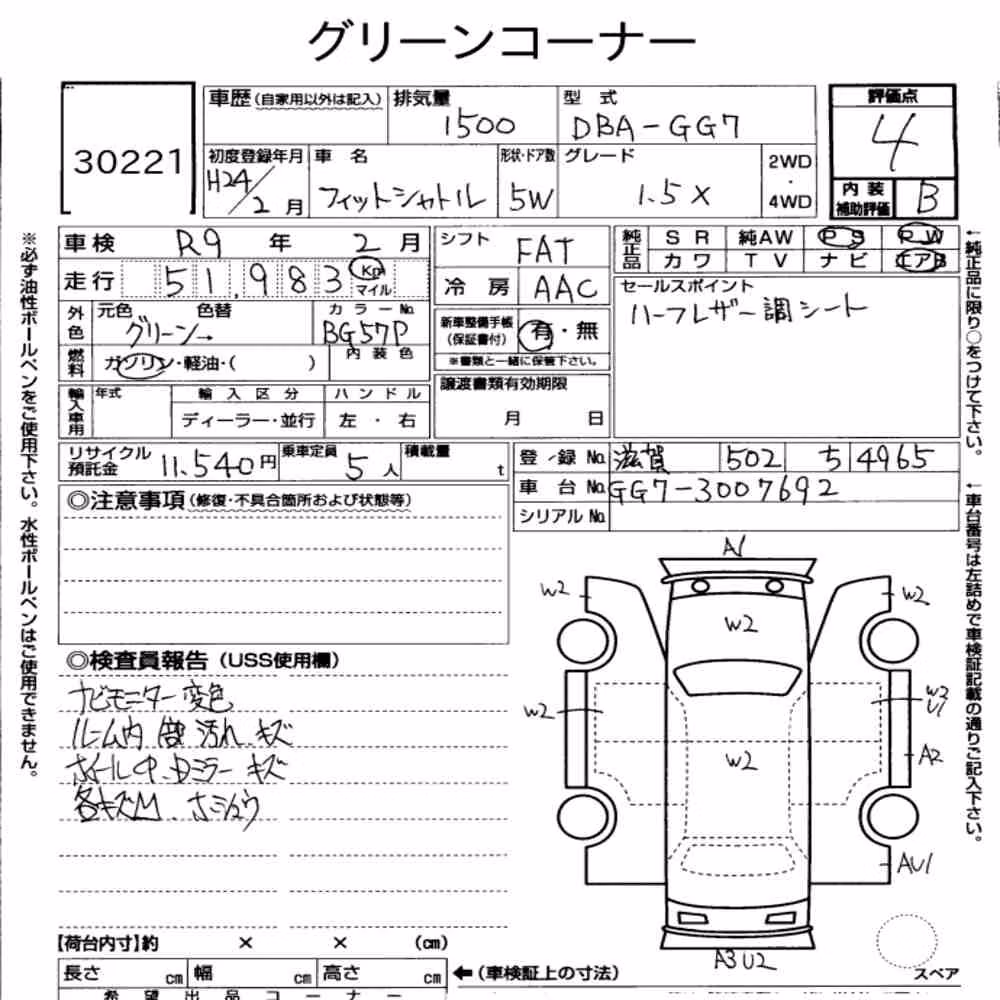 グリーンコーナー
30221
車歴(自家用以外は記入) 排気量 1500 型 式 DBA-GG7
評価点 4
初度登録年月 H24/2月 車 名 フィットシャトル 形状・ドア数 5W グレード 1.5X 2WD・4WD
内装補助評価 B
車検 R9 年 2 月
走行 51,983 Km マイル
シフト FAT
冷房 AAC
純正品 SR 純AW PS PW
カワ TV ナビ エアB
セールスポイント
ハーフレザー調シート
外色 元色 グリーン→ 色替 カラーNo. BG57P
燃料 ガソリン・軽油・( ) 内装色
新車整備手帳(保証書付) 有・無
※書類と一緒に保管下さい。
輸入車用 年式 輸入区分 ディーラー・並行 ハンドル 左・右
譲渡書類有効期限 月 日
リサイクル預託金 11,540円 乗車定員 5人 積載量 t
登録No. 滋賀 502 ち 4965
車台No. GG7-3007692
シリアルNo.
◎注意事項(修復・不具合箇所および状態等)
◎検査員報告(USS使用欄)
ナビモニター変色
ルーム内 汚れ キズ
ホイール Dミラー キズ
各キズM
A1
W2
W2
W2
W2
W2
U1
W2
A2
AU1
A3U2
スペア
【荷台内寸】約 × × (cm)
長さ cm 幅 cm 高さ cm ←(車検証上の寸法)
希望出品コーナー
※必ず油性ボールペンをご使用下さい。水性ボールペンはご使用できません。
←純正品に限り○をつけて下さい。
←車台番号は左詰めで車検証記載の通りご記入下さい。